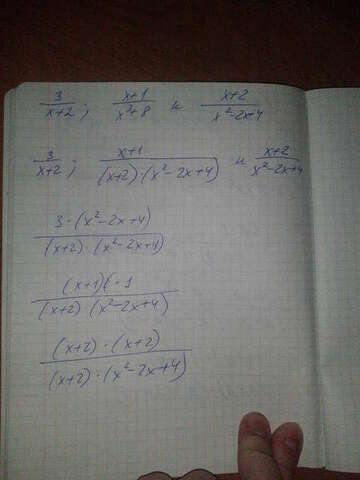 3/(x+2); (x+1)/(x³+8) и (x+2)/(x²-2x+4)
3/(x+2); (x+1)/((x+2)·(x²-2x+4)) и (x+2)/(x²-2x+4)
3·(x²-2x+4)/((x+2)·(x²-2x+4))
(x+1)(·1/((x+2)·(x²-2x+4))
(x+2)·(x+2)/((x+2)·(x²-2x+4))